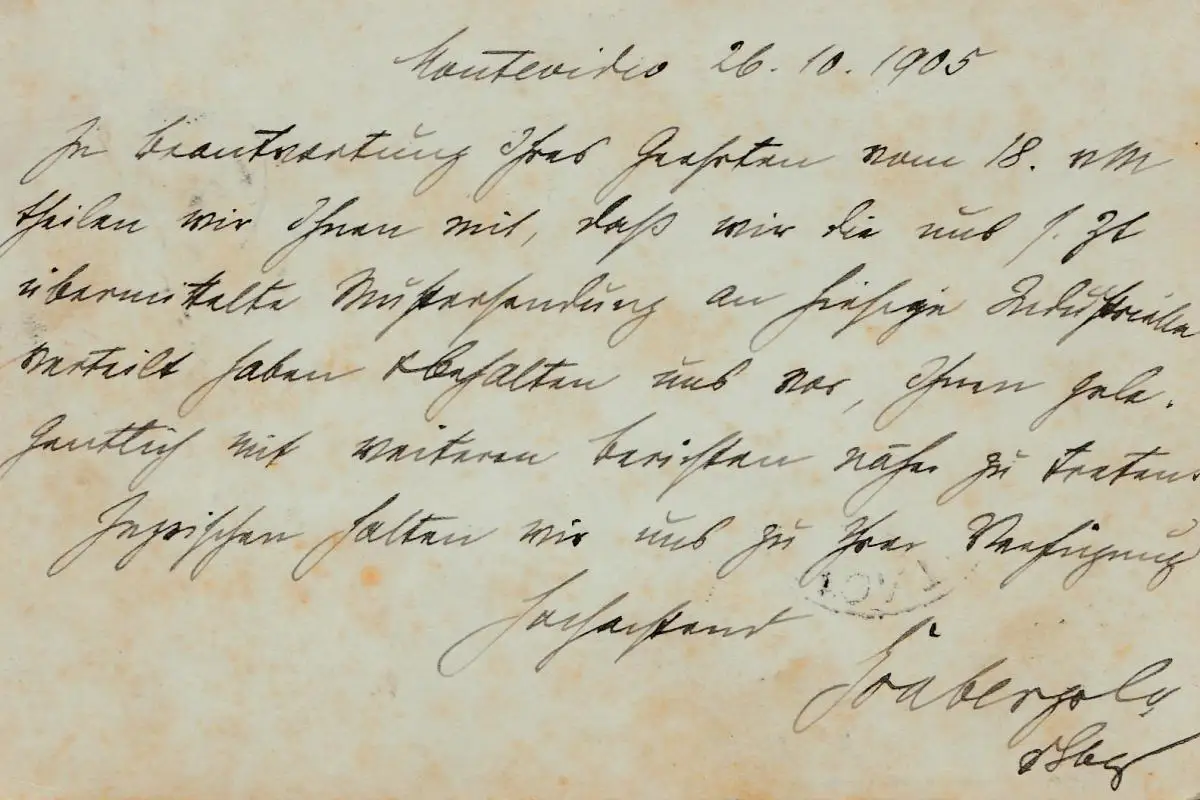 Montevideo 26. 10. 1905
In Beantwortung Ihres Geehrten vom 18. vM
theilen wir Ihnen mit, daß wir die uns s. Zt
übermittelte Mustersendung an hiesige Industrielle
verteilt haben & behalten uns vor, Ihnen gele-
gentlich mit weiteren Berichten näher zu treten.
Inzwischen halten wir uns zu Ihrer Verfügung
Hochachtend